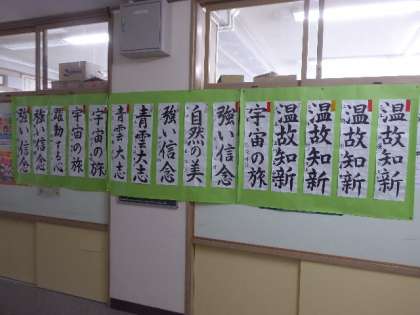 温故知新
温故知新
温故知新
温故知新
宇宙の旅
強い信念
自然の美
強い信念
青雲大志
青雲大志
宇宙の旅
宇宙の旅
躍動する心
強い信念
強い信念